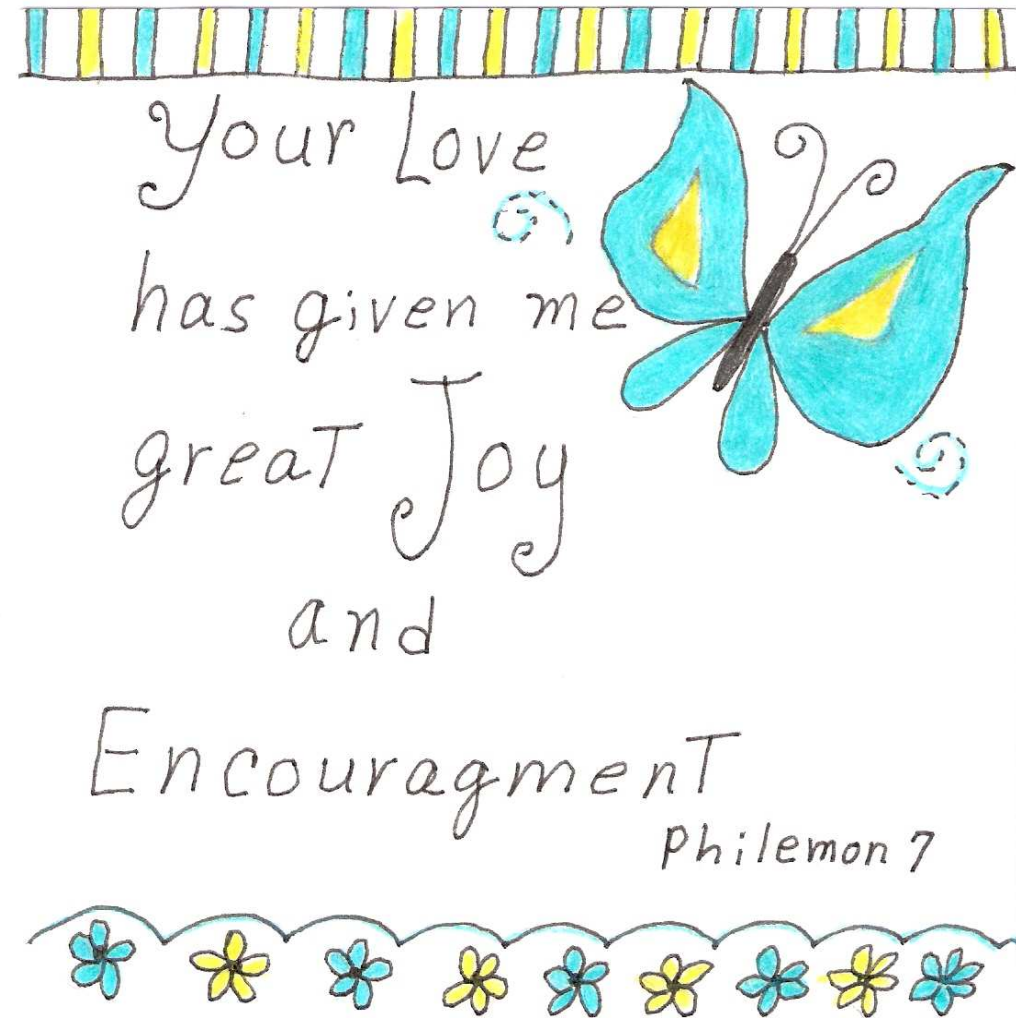 Your Love
has given me
great Joy
and
Encouragment
Philemon 7